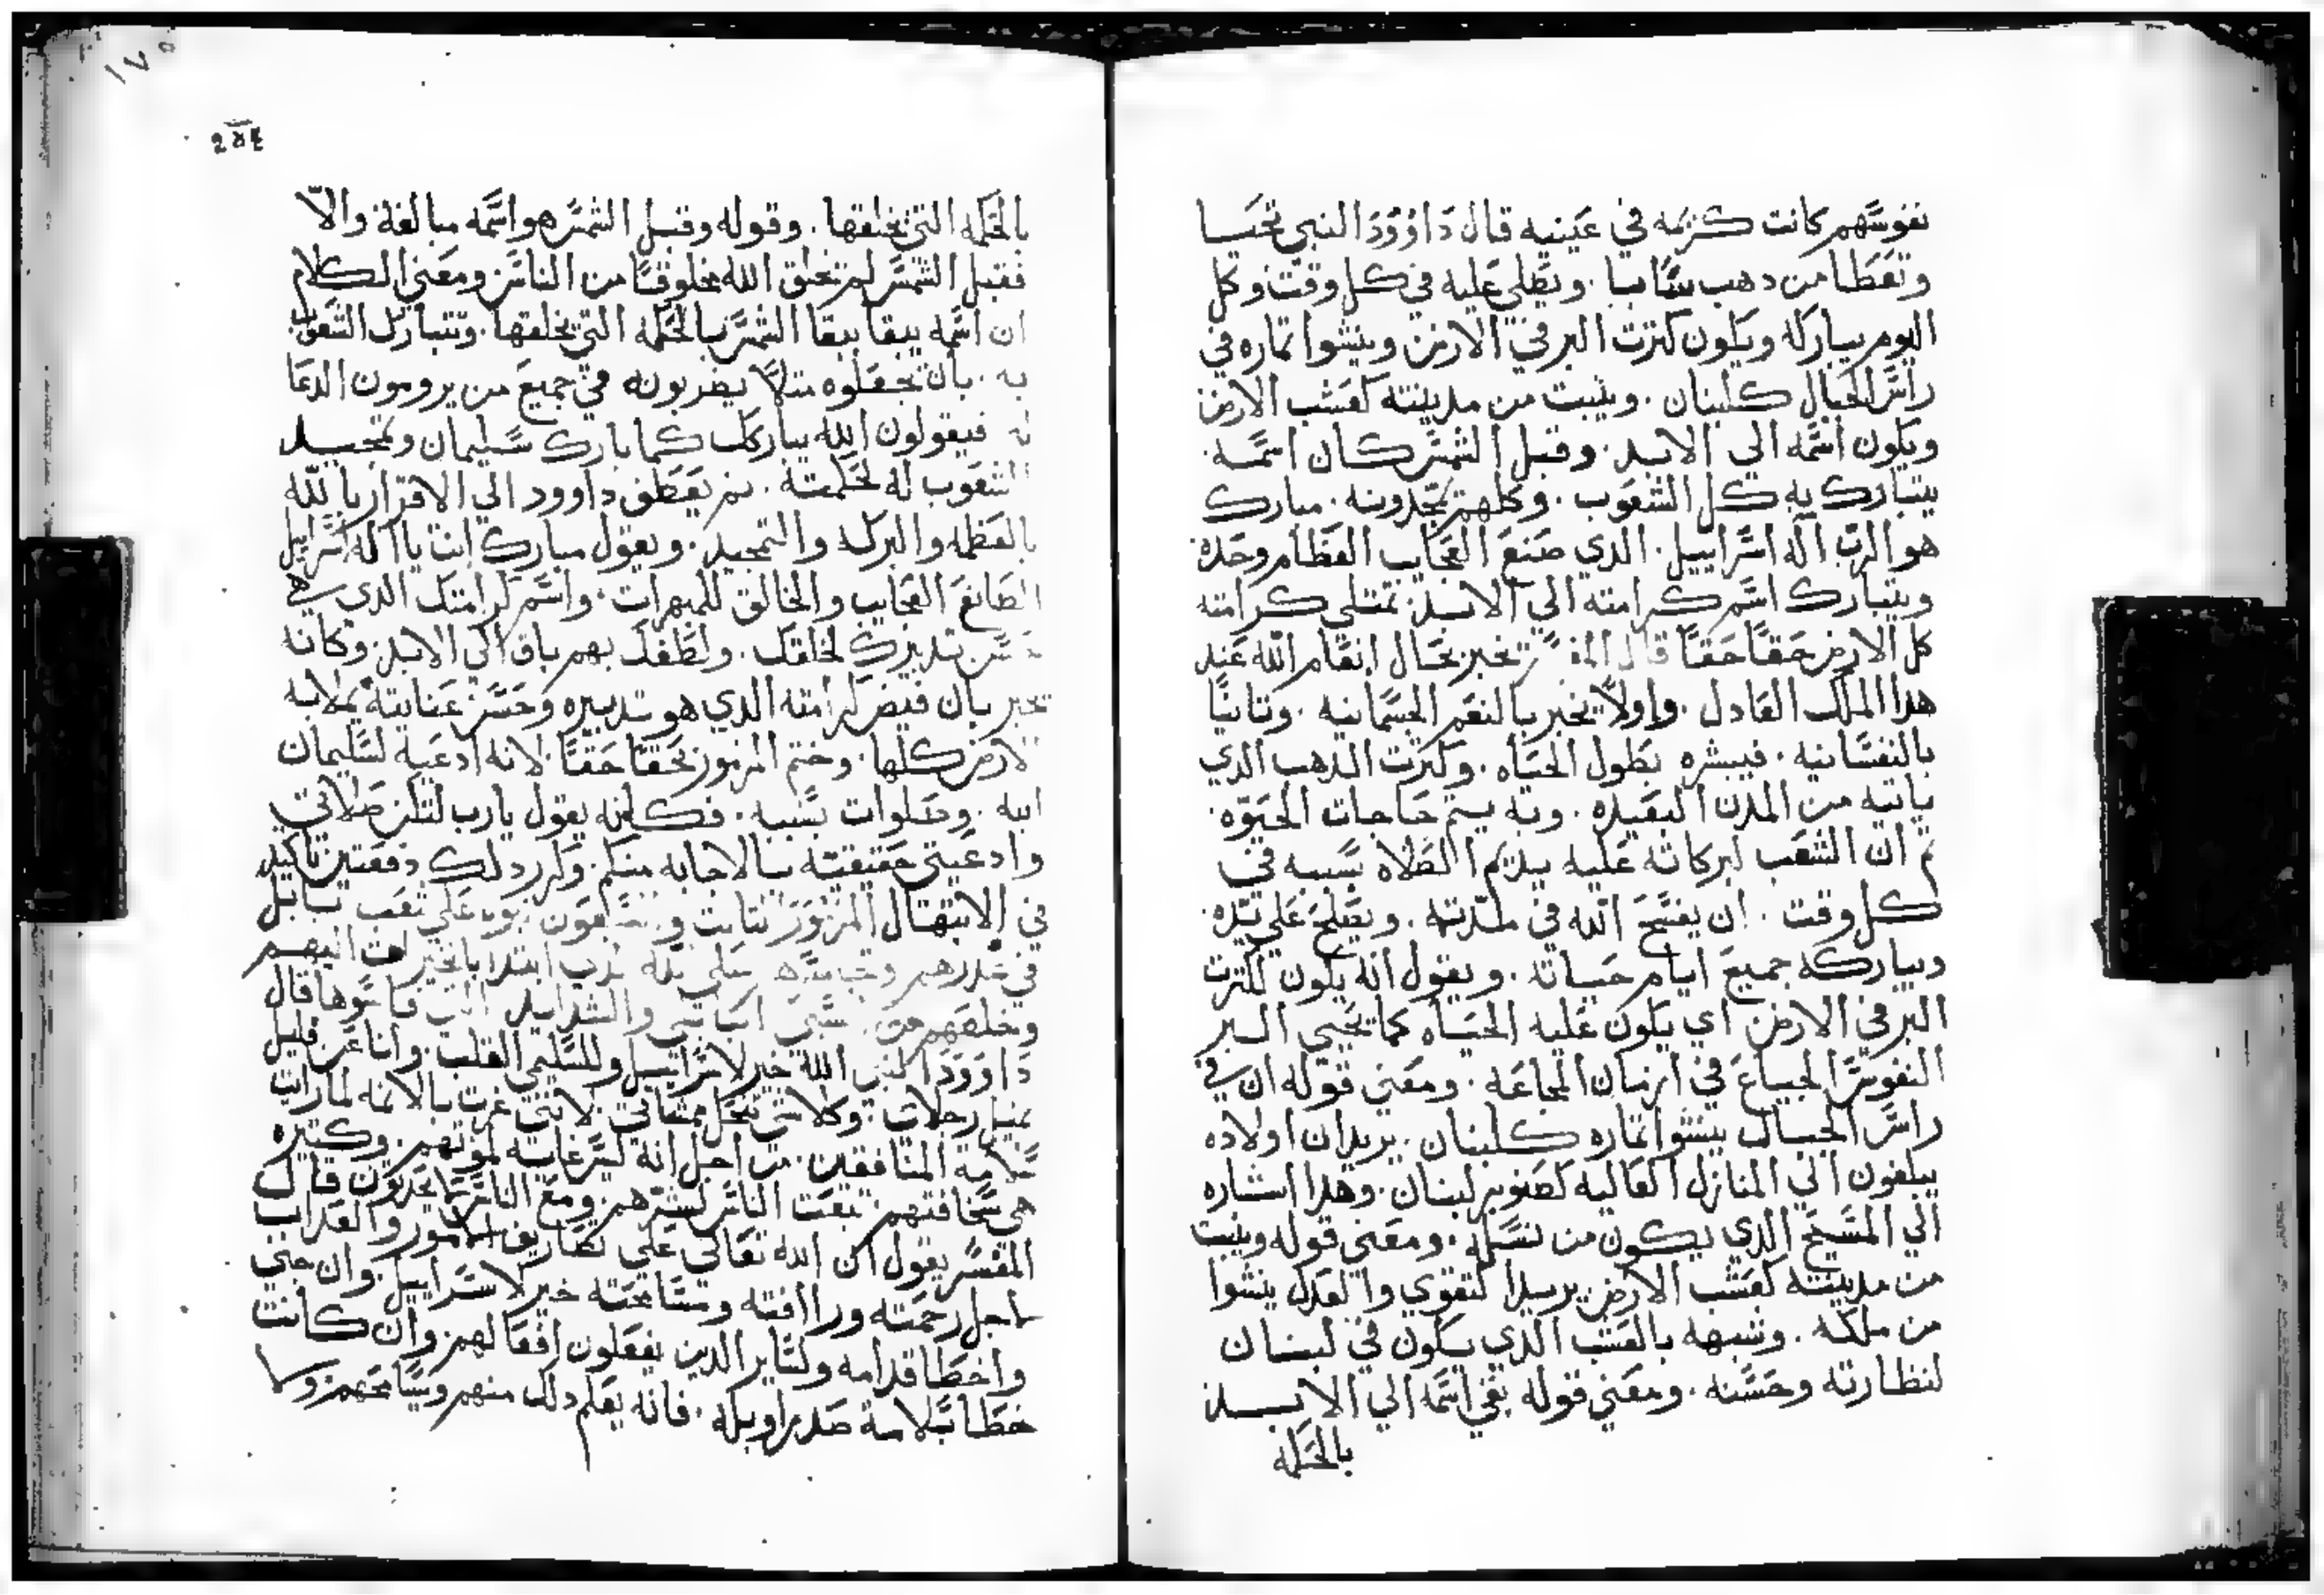 نفوسهم كانت كريمه في عينيه قال داوود النبي تحيا
وتعطا من دهب سابا . ويصلي عليه في كل وقت وكل
اليوم يباركه ويكون كترت البر في الارض وينشوا تماره في
راس الجبال كلبنان . وينبت من مدينته كعشب الارض
ويكون اسمه الي الابد . وقبل الشمس كان اسمه .
يتبارك به كل الشعوب . وكلهم يمجدونه . مبارك
هو الرب اله اسراييل . الدي صنع العجايب العظام وحده
ويتبارك اسم كرامته الي الابد . تمتلي كرامته
كل الارض حقًا حقًا قال المفسر يخبر بحال انعام الله عند
هدا الملك العادل . واولًا يخبر بالنعم الجسمانيه . وتانيًا
بالنفسانيه . فيبشره بطول الحياه . وكترت الدهب الدي
ياتيه من المدن البعيده . وبه يتم حاجات الحيوه .
تم ان الشعب لبركاته عليه يديم الصلاه بسببه في
كل وقت . ان يفسح الله في مدته . ويصلح علي يده .
ويباركه جميع ايام حياته . ويقول انه يكون لكترت
البر في الارض اي يكون عليه الحياه كما يحيي البر
النفوس الجياع في ازمان المجاعه . ومعني قوله ان في
راس الجبال ينشوا تماره كلبنان . يريد ان اولاده
يبلغون الي المنازل العاليه كصنوبر لبنان . وهدا اشاره
الي المسيح الدي يكون من نسله . ومعني قوله وينبت
من مدينته كعشب الارض يريد التقوي والعدل ينشوا
من ملكه . وشبهه بالعشب الدي يكون في لبنان
لنظارته وحسنه . ومعني قوله بقي اسمه الي الابد
بالحكمه
2
بالحكمه التي يخلفها . وقوله وقبل الشمس هو اسمه مبالغة والا
فقبل الشمس لم يخلق الله مخلوقًا من الناس ومعني الكلام
ان اسمه يبقا ببقا الشمس بالحكمه التي يخلفها . وتتبارك الشعوب
به . بان يجعلوه متلًا يضربونه في جميع من يرومون الدعا
له فيقولون الله يباركك كما بارك سليمان وتمجيد
الشعوب له لحكمته . تم يعطف داوود الي الاقرار بالله
بالعظمه والبركه والتمجيد . ويقول مبارك انت يا اله اسراييل
الصانع العجايب والخالق للمبهرات . واسم كرامتك الدي هي
حسن تدبيرك لخلقك . ولطفك بهم باق الي الابد . وكانه
يخبر بان فيض كرامته الدي هو تدبيره وحسن عنايته يملا به
الارض كلها . وختم المزمور بحقًا حقًا لانه ادعيه لسليمان
ابنه . وصلوات بسببه . فكانه يقول يارب لتكن صلاتي
وادعيتي حقيقيه بالاجابه منكم . وكرر دلك دفعتين تاكيد
في الابتهال المزمور تالت وسبعون علي تعب بابل
قاسوها قال
داوود النبي الله خير لاسراييل وللسليمي القلب . وانا عن قليل
تميل رجلات . وكلاشي تنحل مشافي . لانني غرت بالاتمه لما رايت
سلامة المنافقين . من اجل انه ليس غايه لموتهم . وكتيره
هي سخافتهم . تبعت الناس لشرهم ومع الناس ما يجربون قال
المفسر يقول ان الله تعالي علي تصاريف الامور والعداب
لاجل رحمته ورافته ومسامحته خير لاسراييل . وان جي
واخطا قدامه ولساير الدين يفعلون افعالهم وان كانت
خطا بسلامة صدر او بله . فانه يعلم دلك منهم ويسامحهم . وما